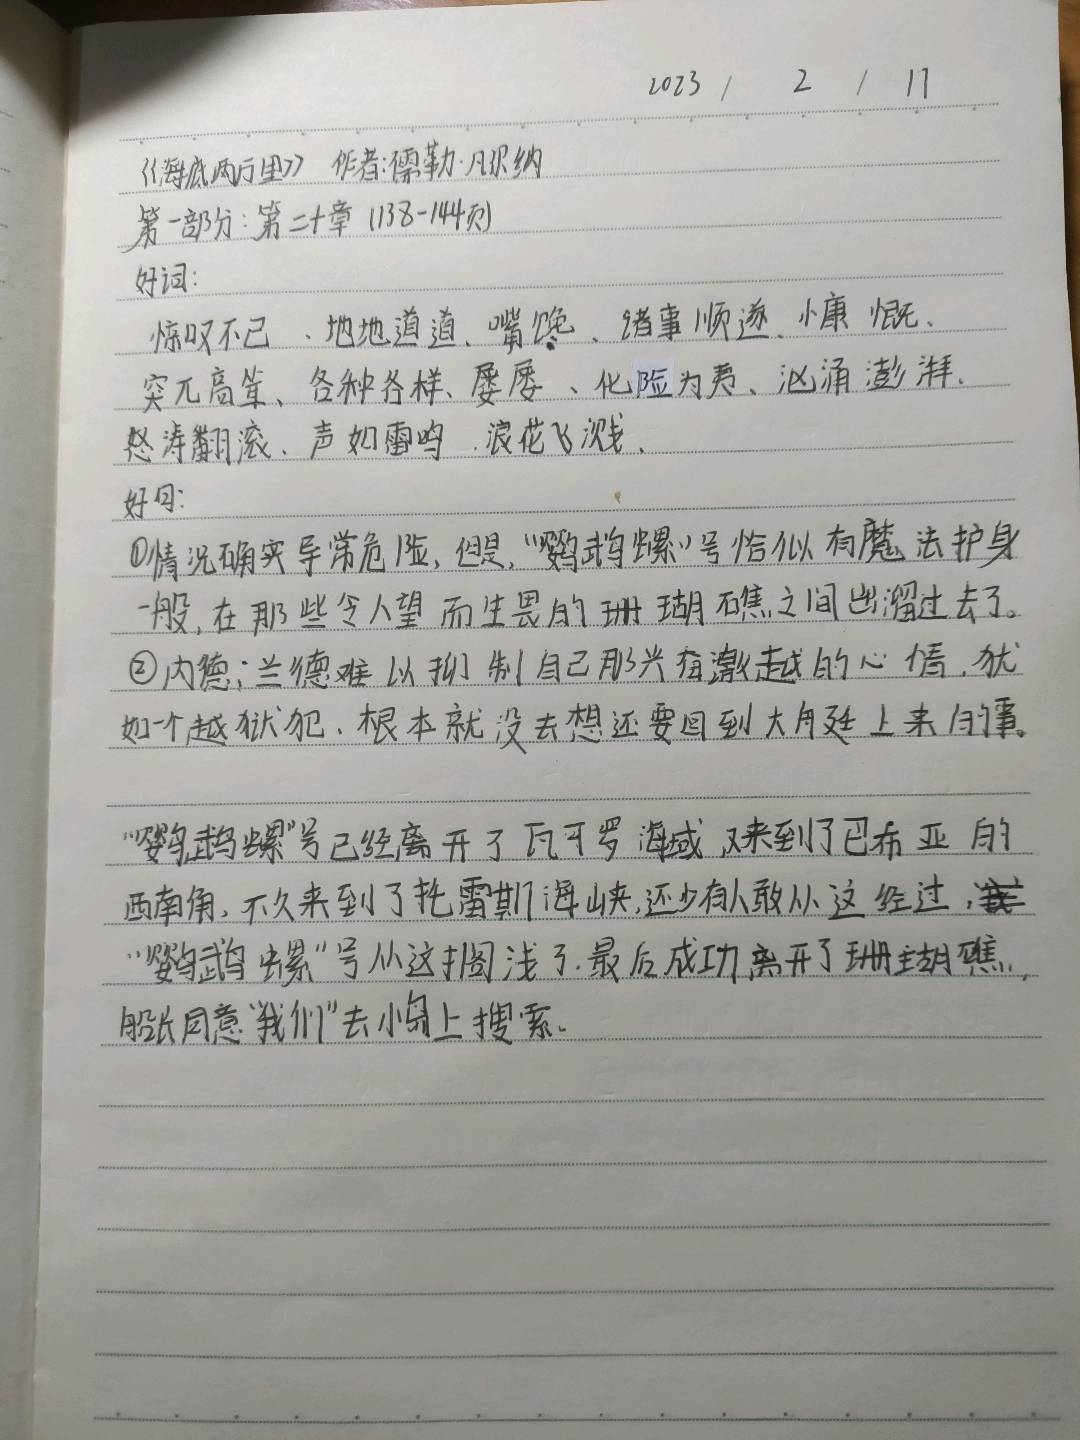 2023 / 2 / 17
《海底两万里》 作者:儒勒·凡尔纳
第一部分:第二十章 (138-144页)
好词:
惊叹不已、地地道道、嘴馋、诸事顺遂、慷慨、
突兀高耸、各种各样、屡屡、化险为夷、汹涌澎湃、
怒涛翻滚、声如雷鸣、浪花飞溅、
好句:
①情况确实异常危险,但是,“鹦鹉螺”号恰似有魔法护身
一般,在那些令人望而生畏的珊瑚礁之间出溜过去了。
②内德;兰德难以抑制自己那兴奋激越的心情,犹
如一个越狱犯、根本就没去想还要回到大舟廷上来的事。
“鹦鹉螺”号已经离开了瓦可罗海域,又来到了巴布亚的
西南角,不久来到了托雷斯海峡,还少有人敢从这经过,
“鹦鹉螺”号从这搁浅了.最后成功离开了珊瑚礁,
船长同意“我们”去小岛上搜索。